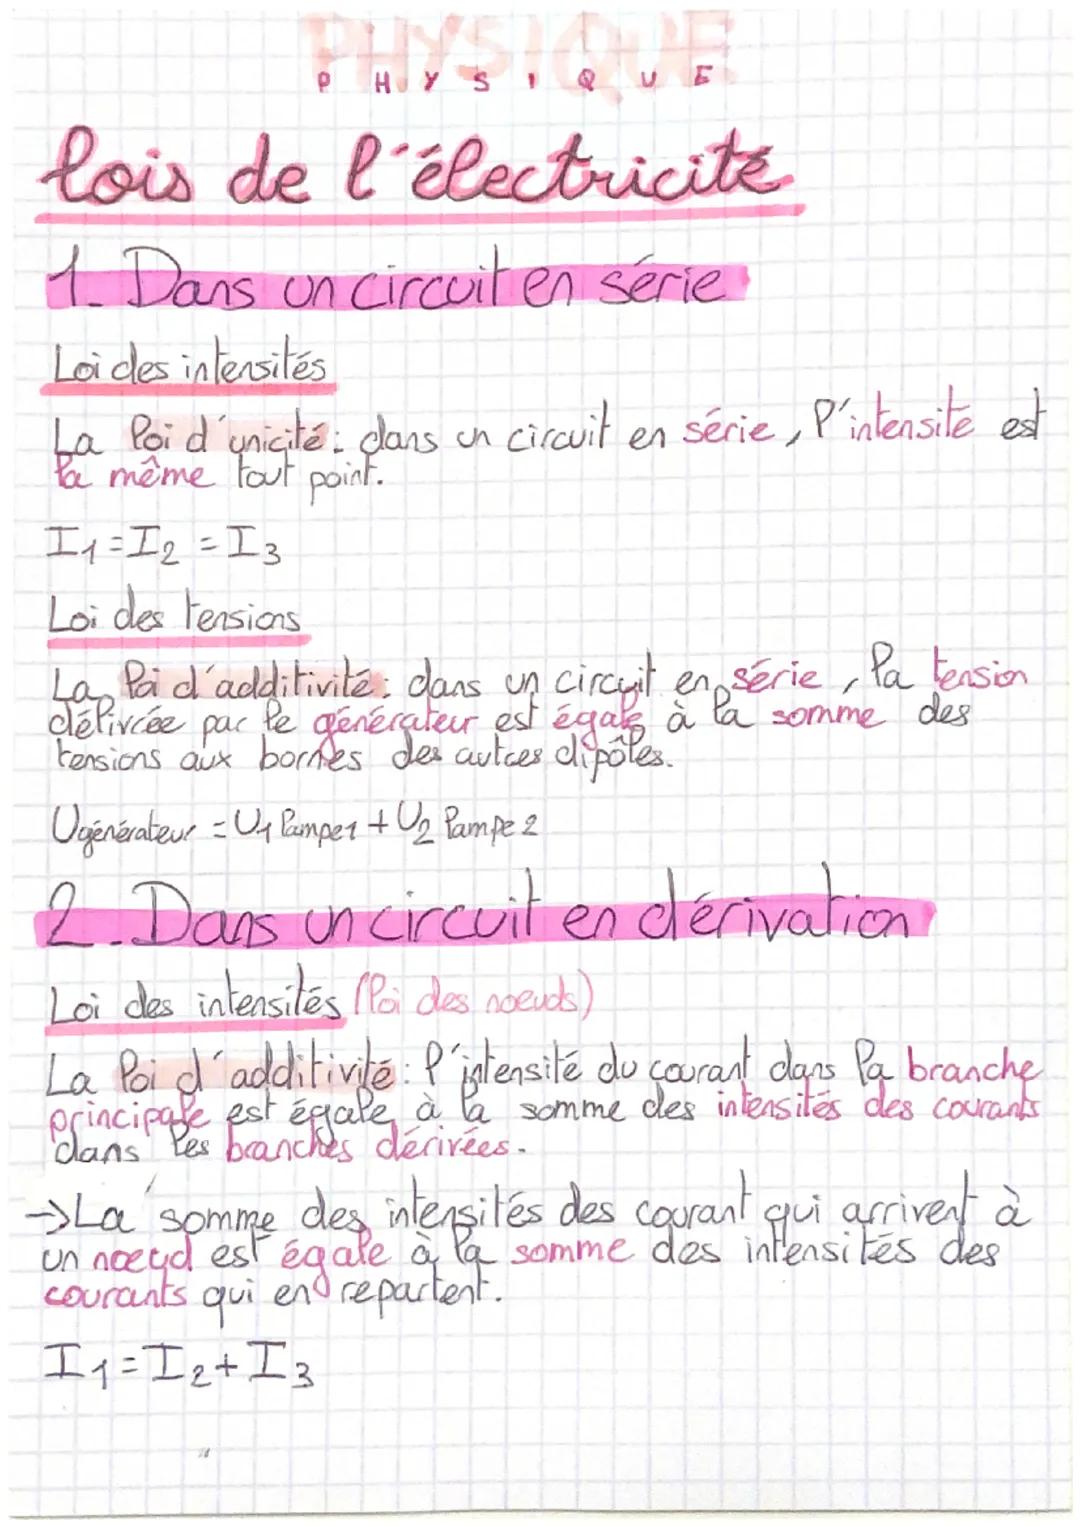 PHYSIQUE
PHYSIQUE
lois de l'électricité
1. Dans un circuit en série
Loi des intensités
La loi d'unicité : dans un circuit en série, l'intensité est
la même tout point.
I1 = I2 = I3
Loi des tensions
La loi d'additivité : dans un circuit en série, la tension
délivrée par le générateur est égale à la somme des
tensions aux bornes des autres dipôles.
Ugénérateur = U1 lampe1 + U2 lampe 2
2. Dans un circuit en dérivation
Loi des intensités (loi des noeuds)
La loi d'additivité : l'intensité du courant dans la branche
principale est égale à la somme des intensités des courants
dans les branches dérivées.
→ La somme des intensités des courant qui arrivent à
un nœud est égale à la somme des intensités des
courants qui en repartent.
I1 = I2 + I3